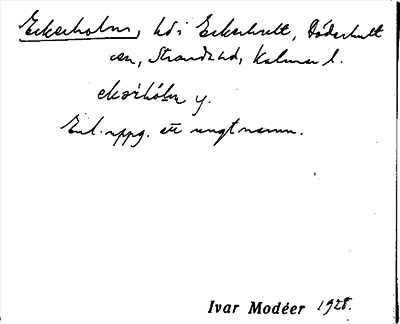 Eckerholm, hö i Eckerhult, Döderhult
sn, Stranda hd, Kalmar l.
ekərhòlm y.
Enl. uppg. ett ungt namn.
Ivar Modéer 1928.